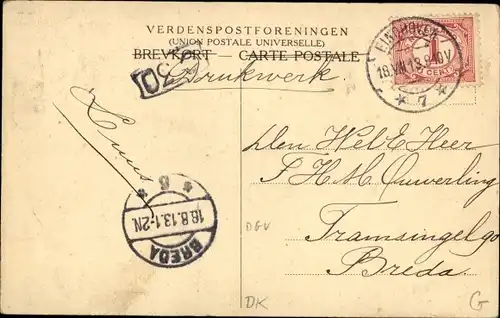 VERDENSPOSTFORENINGEN
(UNION POSTALE UNIVERSELLE)
BREVKORT — CARTE POSTALE
Drukwerk.
EINDHOVEN
7
1 CENT
Den Wel E Heer
J H M Ouwerling
Tramsingel 90
Breda.
18.8.13.1-2N
BREDA
8
DGV
DK
G